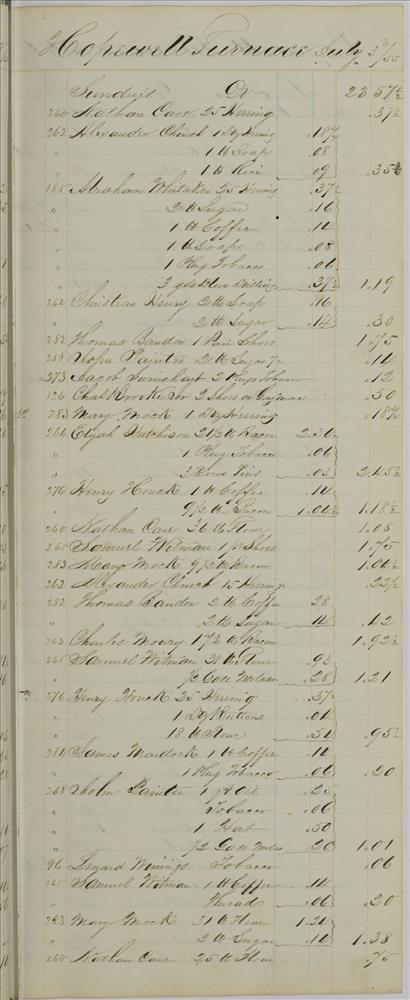 Hopewell Furnace July 3d/55
Sundrys Dr 23 57½
260 Nathan Care 25 Herring .37½
262 Alexander Church 1 Dz Herring .18¾
" 1 lb Soap .08
" 1 lb Rice .09 .35¾
185 Abraham Whitaker 25 Herring .37½
" 2 lb Sugar .16
" 1 lb Coffee .14
" 1 lb Soap .08
" 1 Plug Tobacco .06
" 3 yds Blue .37½ 1.19
262 Christian Henry 2 lb Soap .16
2 lb Sugar .14 .30
282 Thomas Bandon 1 Pair Shoes 1.75
258 John Painter 2 lb Sugar 7c .14
273 Jacob 2 Plugs Tobacco .12
126 2 Shoes on Grey mare .50
283 Mary Mock 1 Dz Herring .18¾
264 Elijah Hutchison 21½ lb Bacon 2.36½
" 1 Plug Tobacco .06
" 3 Rows Pins .03 2.45½
276 Henry Houck 1 lb Coffee .14
" 9½ lb Bacon 1.04½ 1.18½
260 Nathan Care 36 lb Flour 1.08
265 Samuel Witman 1 pr Shoes 1.75
283 Mary Mock 9½ lb Bacon 1.04½
262 Alexander Church 15 Herring .22½
282 Thomas Bandon 2 lb Coffee 28
" 2 lb Sugar 14 .42
263 Charles Mowry 17½ lb Bacon 1.92½
265 Samuel Witman 31 lb Flour .93
" ½ Gall Molases .28 1.21
276 Henry Houck 25 Herring .37½
" 1 Dz Buttons .04
" 18 lb Flour .54 .95½
211 James Murdock 1 lb Coffee .14
" 1 Plug Tobacco .06 .20
258 John Painter 1 qt Oil .25
" Tobacco .06
" 1 Hat .50
" ½ Gall Molas 20 1.01
96 Lenard Tobacco .06
265 Samuel Witman 1 lb Coffee .14
" Thread .06 .20
283 Mary Mock 31 lb Flour 1.24
" 2 lb Sugar .14 1.38
260 Nathan Care 25 lb Flour .75